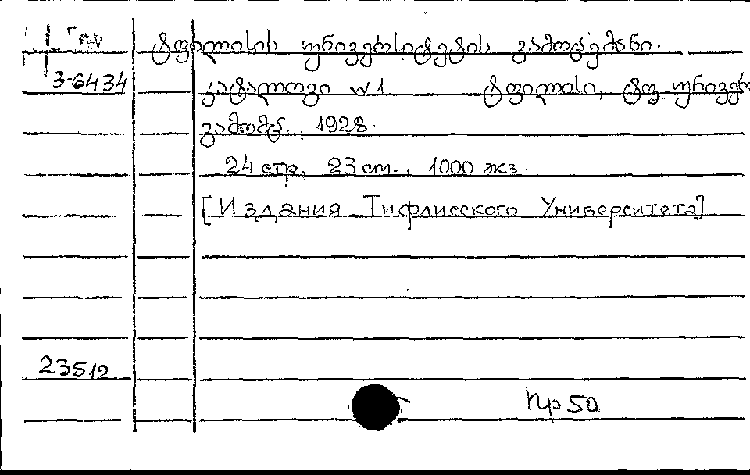 ტფილისის უნივერსიტეტის გამოცემანი.
3-6434
კატალოგი №1 ტფილისი, ტფ. უნივერ
გამომც., 1928.
24 стр, 23 cm., 1000 экз.
[Издания Тифлисского Университета]
23512
Пр 50